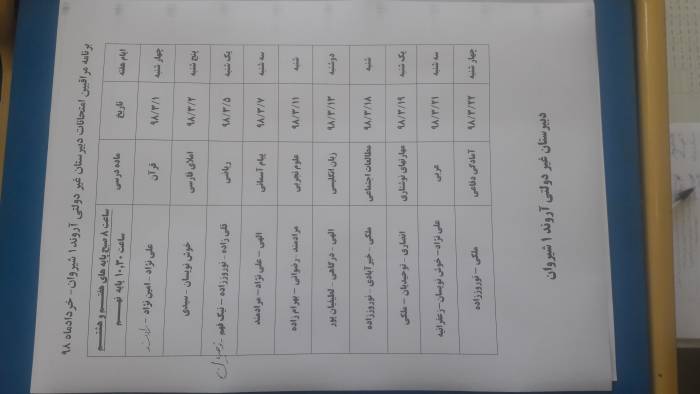 برنامه مراقبین امتحانات دبیرستان غیر دولتی آروند ۱ شیروان - خردادماه ۹۸
ایام هفته تاریخ ماده درسی ساعت ۸ صبح پایه های هفتم و هشتم
ساعت ۱۰,۳۰ پایه نهم
چهار شنبه ۹۸/۳/۱ قرآن علی نژاد - امین نژاد -
پنج شنبه ۹۸/۳/۲ املای فارسی خوش نویسان - سیدی
یک شنبه ۹۸/۳/۵ ریاضی قلی زاده - نوروززاده - نیک فهم
سه شنبه ۹۸/۳/۷ پیام آسمانی الهی - علی نژاد - مرادمند
شنبه ۹۸/۳/۱۱ علوم تجربی مرادمند - رضوانی - بهرام زاده
دوشنبه ۹۸/۳/۱۳ زبان انگلیسی الهی - درگاهی - لطیفیان پور
شنبه ۹۸/۳/۱۸ مطالعات اجتماعی ملکی - خیرآبادی - نوروززاده
یک شنبه ۹۸/۳/۱۹ مهارتهای نوشتاری انصاری - توحیدیان - ملکی
سه شنبه ۹۸/۳/۲۱ عربی علی نژاد - خوش نویسان - زعفرانیه
چهار شنبه ۹۸/۳/۲۲ آمادگی دفاعی ملکی - نوروززاده
دبیرستان غیر دولتی آروند ۱ شیروان